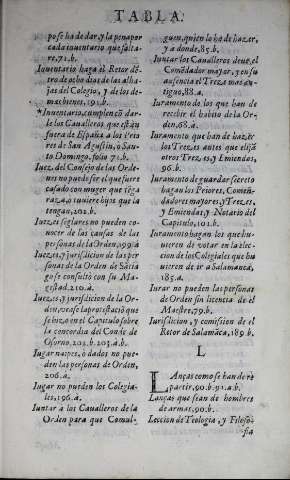 TABLA.
po se ha de dar, y la pena por
cada inuentario que falta-
re, 71.b.
Inuentario haga el Retor de͂-
tro de ocho dias de las alha-
jas del Colegio, y de los de-
mas bienes, 191.b.
*Inuentario, cumplen co͂ dar
le los Caualleros que està͂
fuera de España, a los Prio
res de San Agustin, o San-
to Domingo. folio 71.b.
Iuez, del Consejo de las Orde-
nes no puede ser el que fuere
casado con muger que te͂ga
raza, o tuuiere hijos que la
tengan, 202.b.
Iuezes seglares no pueden co-
nocer de las causas de las
personas de la Orden, 199.a
Iuezes, y jurisdicion de las per
sonas de la Orden de Sa͂tia
go se consultò con su Ma-
gestad, 210.a.
Iuezes, y jurisdicion de la Or-
den, vease la protestaciò que
se hizo en el Capitulo sobre
la concordia del Conde de
Osorno, 202.b. 203.a.b.
Iugar naipes, ò dados no pue-
den las personas de Orden,
206.a.
Iugar no pueden los Colegia-
les, 196.a.
Iuntar a los Caualleros de la
Orden para que Comul-
guen, quien lo ha de hazer,
y a donde, 85.b.
Iuntar los Caualleros deue, el
Come͂dador mayor, y en su
ausencia el Treze mas an-
tiguo, 88.a.
Iuramento de los que han de
recebir el habito de la Or-
den, 68.a.
Iuramento que han de hazer
los Trezes antes que elijà
otros Trezes, y Emiendas,
96.b.
Iuramento de guardar secreto
hagan los Priores, Come͂-
dadores mayores, y Trezes,
y Emiendas, y Notario del
Capitulo, 101.b.
Iuramento hagan los que hu-
uieren de votar en la elec-
cion de los Colegiales que hu
uieren de ir a Salamanca,
185.a.
Iurar no pueden las personas
de Orden sin licencia de el
Maestre, 79.b.
Iurisdicion, y comission de el
Retor de Salamàca, 189.b.
L
LAnças como se han de re
partir, 90.b. 91.a.b.
Lanças que sean de hombres
de armas, 90.b.
Leccion de Teologia, y Filoso-
fia